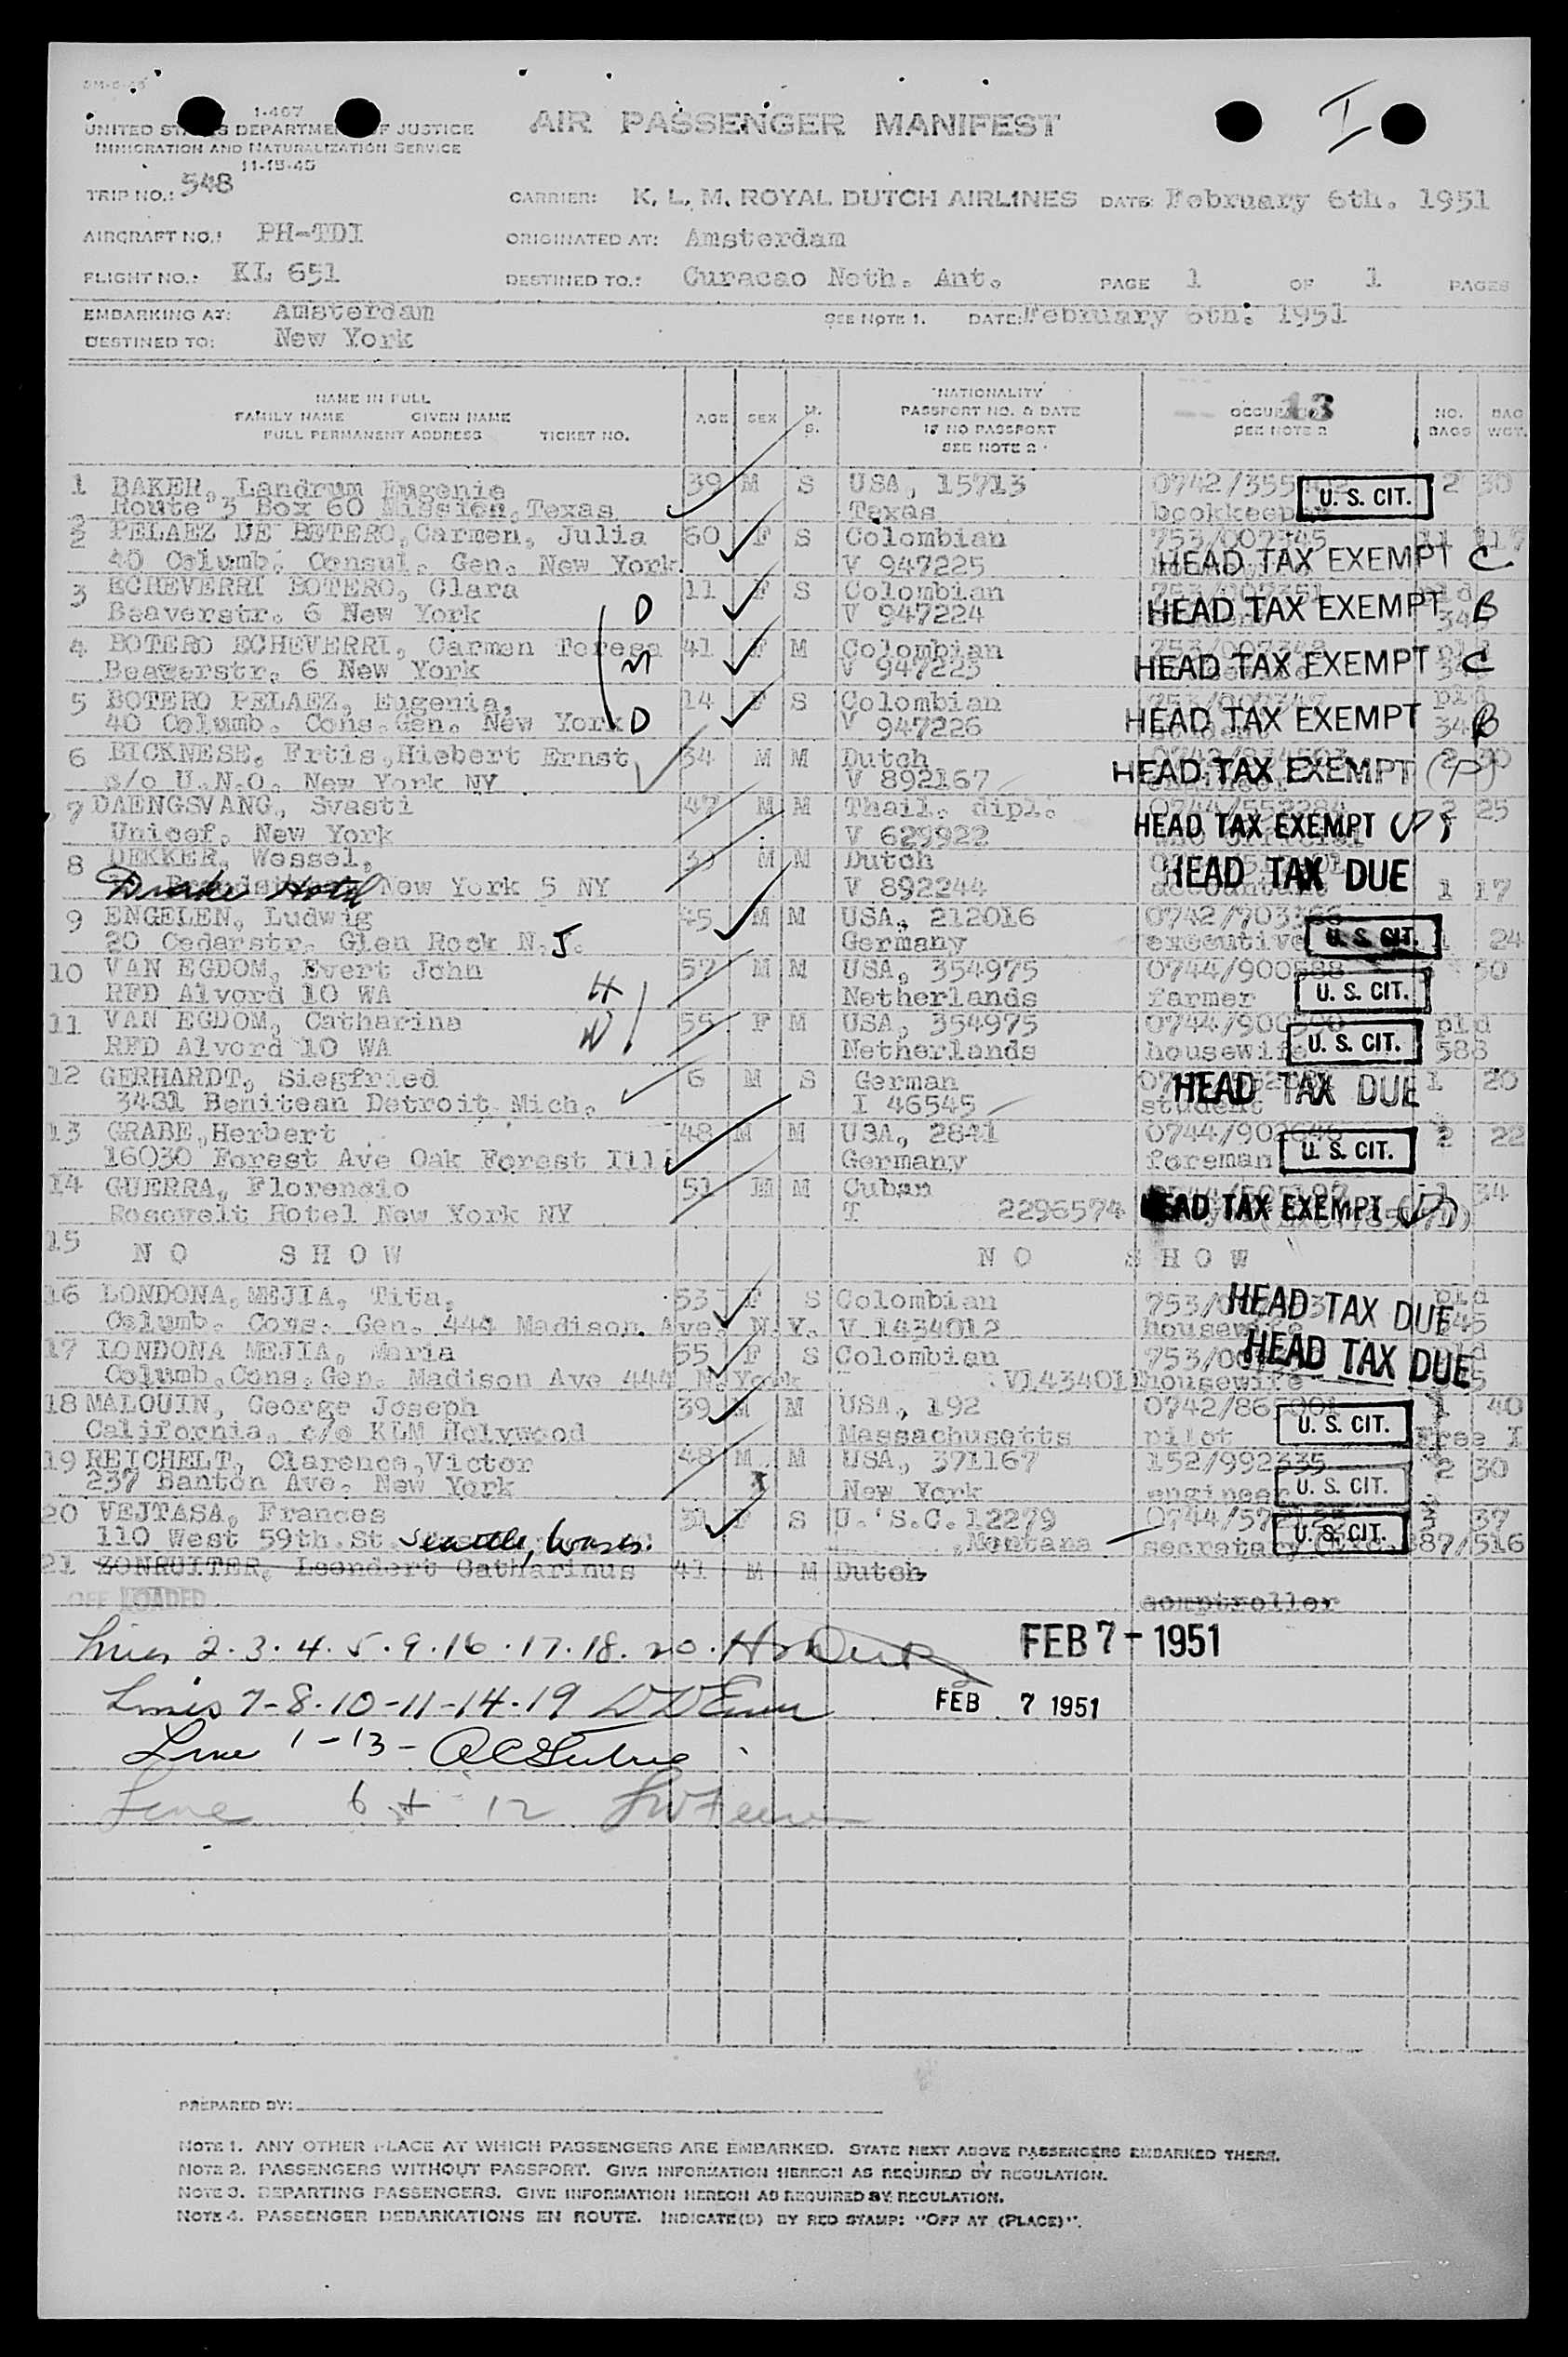 1-467
UNITED STATES DEPARTMENT OF JUSTICE
IMMIGRATION AND NATURALIZATION SERVICE
11-15-45
AIR PASSENGER MANIFEST
I
TRIP NO.: 548
CARRIER: K. L. M. ROYAL DUTCH AIRLINES DATE: February 6th. 1951
AIRCRAFT NO.: PH-TDI
ORIGINATED AT: Amsterdam
FLIGHT NO.: KL 651
DESTINED TO.: Curacao Neth. Ant. PAGE 1 OF 1 PAGES
EMBARKING AT: Amsterdam
SEE NOTE 1. DATE: February 6th. 1951
DESTINED TO: New York
NAME IN FULL
FAMILY NAME GIVEN NAME
FULL PERMANENT ADDRESS TICKET NO.
AGE SEX M. S.
NATIONALITY
PASSPORT NO. & DATE
IF NO PASSPORT
SEE NOTE 2
13
SEE NOTE 2
NO. BAGS
BAG WGT.
1 BAKER, Landrum Eugenie 39 M S USA, 15713 U. S. CIT. 2 30
Route 3 Box 60 Mission, Texas Texas bookkeeper
2 PELAEZ DE BETERO, Carmen, Julia 60 F S Colombian 753/007345 11 117
40 Columb. Consul. Gen. New York. V 947225 HEAD TAX EXEMPT C
3 ECHEVERRI BOTERO, Clara 11 F S Colombian pld
Beaverstr. 6 New York D V 947224 HEAD TAX EXEMPT B
4 BOTERO ECHEVERRI, Carmen Teresa 41 F M Colombian
Beaverstr. 6 New York M V 947223 HEAD TAX EXEMPT C
5 BOTERO PELAEZ, Eugenia, 14 F S Colombian
40 Columb. Cons. Gen. New York D V 947226 HEAD TAX EXEMPT B
6 BICKNESE, Frtis, Hiebert Ernst 34 M M Dutch
c/o U.N.O. New York NY V 892167 HEAD TAX EXEMPT (P)
7 DAENGSVANG, Svasti 47 M M Thail. dipl. 2 25
Unicef. New York V 629922 HEAD TAX EXEMPT (P)
8 DEKKER, Wessel, M M Dutch HEAD TAX DUE
Drake Hotel New York 5 NY V 892244 1 17
9 ENGELEN, Ludwig 45 M M USA, 212016
20 Cedarstr. Glen Rock N.J. Germany executive U. S. CIT. 24
10 VAN EGDOM, Evert John 57 M M USA, 354975 50
RFD Alvord 10 WA H Netherlands farmer U. S. CIT.
11 VAN EGDOM, Catharina 55 F M USA, 354975 pld
RFD Alvord 10 WA W Netherlands housewife U. S. CIT. 588
12 GERHARDT, Siegfried 6 M S German HEAD TAX DUE 1 20
3431 Benitean Detroit Mich. I 46545 student
13 GRABE, Herbert 48 M M USA, 2841 2 22
16030 Forest Ave Oak Forest Ill. Germany foreman U. S. CIT.
14 GUERRA, Florencio 51 M M Cuban 34
Rosevelt Hotel New York NY T 2296574 HEAD TAX EXEMPT (P)
15 NO SHOW NO SHOW
16 LONDONA, MEJIA, Tita, 53 F S Colombian HEAD TAX DUE pld
Columb. Cons. Gen. 444 Madison Ave. N.Y. V 1434012 housewife
17 LONDONA MEJIA, Maria 55 F S Colombian HEAD TAX DUE
Columb. Cons. Gen. Madison Ave 444 N.York V1434011 housewife
18 MALOUIN, George Joseph 39 M M USA, 192 0742/865001 1 40
California, c/o KLM Holywood Massachusetts pilot U. S. CIT.
19 REICHELT, Clarence, Victor 48 M M USA, 371167 152/992335 2 30
237 Banton Ave. New York New York engineer U. S. CIT.
20 VEJTASA, Frances 31 F S U. S.C. 12279 37
110 West 59th. St. Seattle, Wash. Montana secretary U. S. CIT. 87/516
21 ZONRUITER, Leendert Catharinus 41 M M Dutch
OFF LOADED comptroller
Lines 2.3.4.5.9.16.17.18.20. FEB 7 - 1951
Lines 7-8-10-11-14-19 FEB 7 1951
Line 1-13-
Line 6 + 12
PREPARED BY:
NOTE 1. ANY OTHER PLACE AT WHICH PASSENGERS ARE EMBARKED. STATE NEXT ABOVE PASSENGERS EMBARKED THERE.
NOTE 2. PASSENGERS WITHOUT PASSPORT. GIVE INFORMATION HEREON AS REQUIRED BY REGULATION.
NOTE 3. DEPARTING PASSENGERS. GIVE INFORMATION HEREON AS REQUIRED BY REGULATION.
NOTE 4. PASSENGER DEBARKATIONS EN ROUTE. INDICATE(D) BY RED STAMP: "OFF AT (PLACE)".